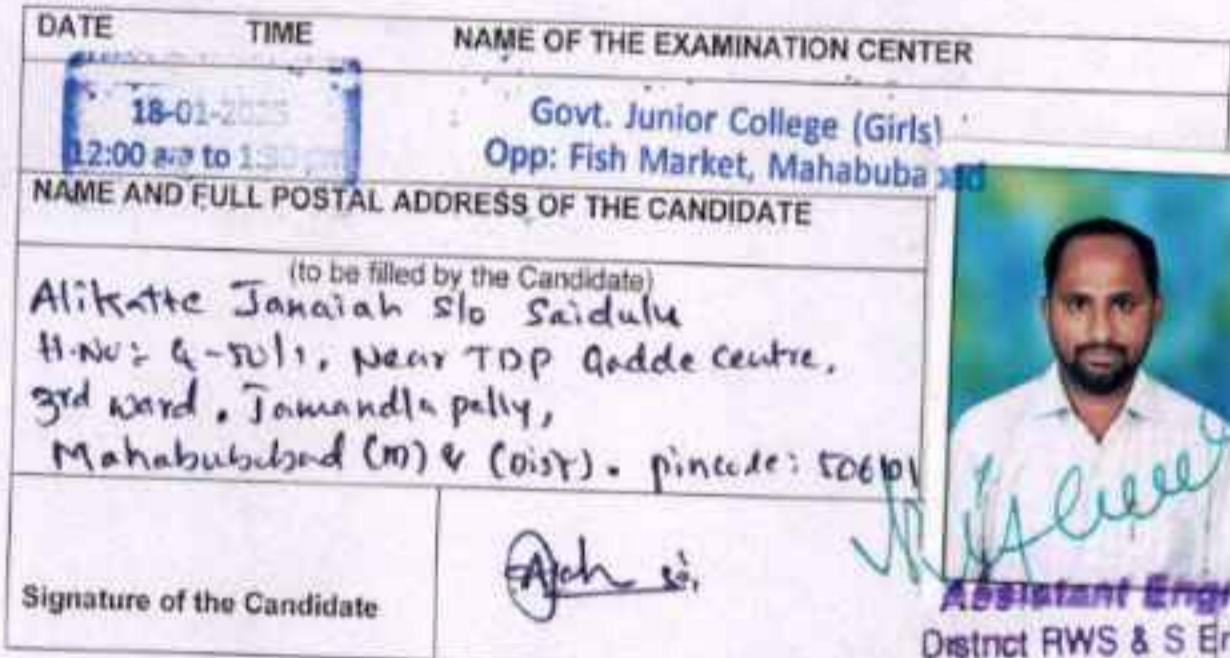 DATE TIME NAME OF THE EXAMINATION CENTER
18-01-2025
12:00 to 1:30 pm
Govt. Junior College (Girls)
Opp: Fish Market, Mahabuba
NAME AND FULL POSTAL ADDRESS OF THE CANDIDATE
(to be filled by the Candidate)
Alikatte Janaiah S/o Saidulu
H.No: Near TDP Gadde centre,
3rd ward, Jamandla pally,
Mahabubabad (m) & (Dist). pincode: 506101
Signature of the Candidate
Assistant Engi
District RWS & S En